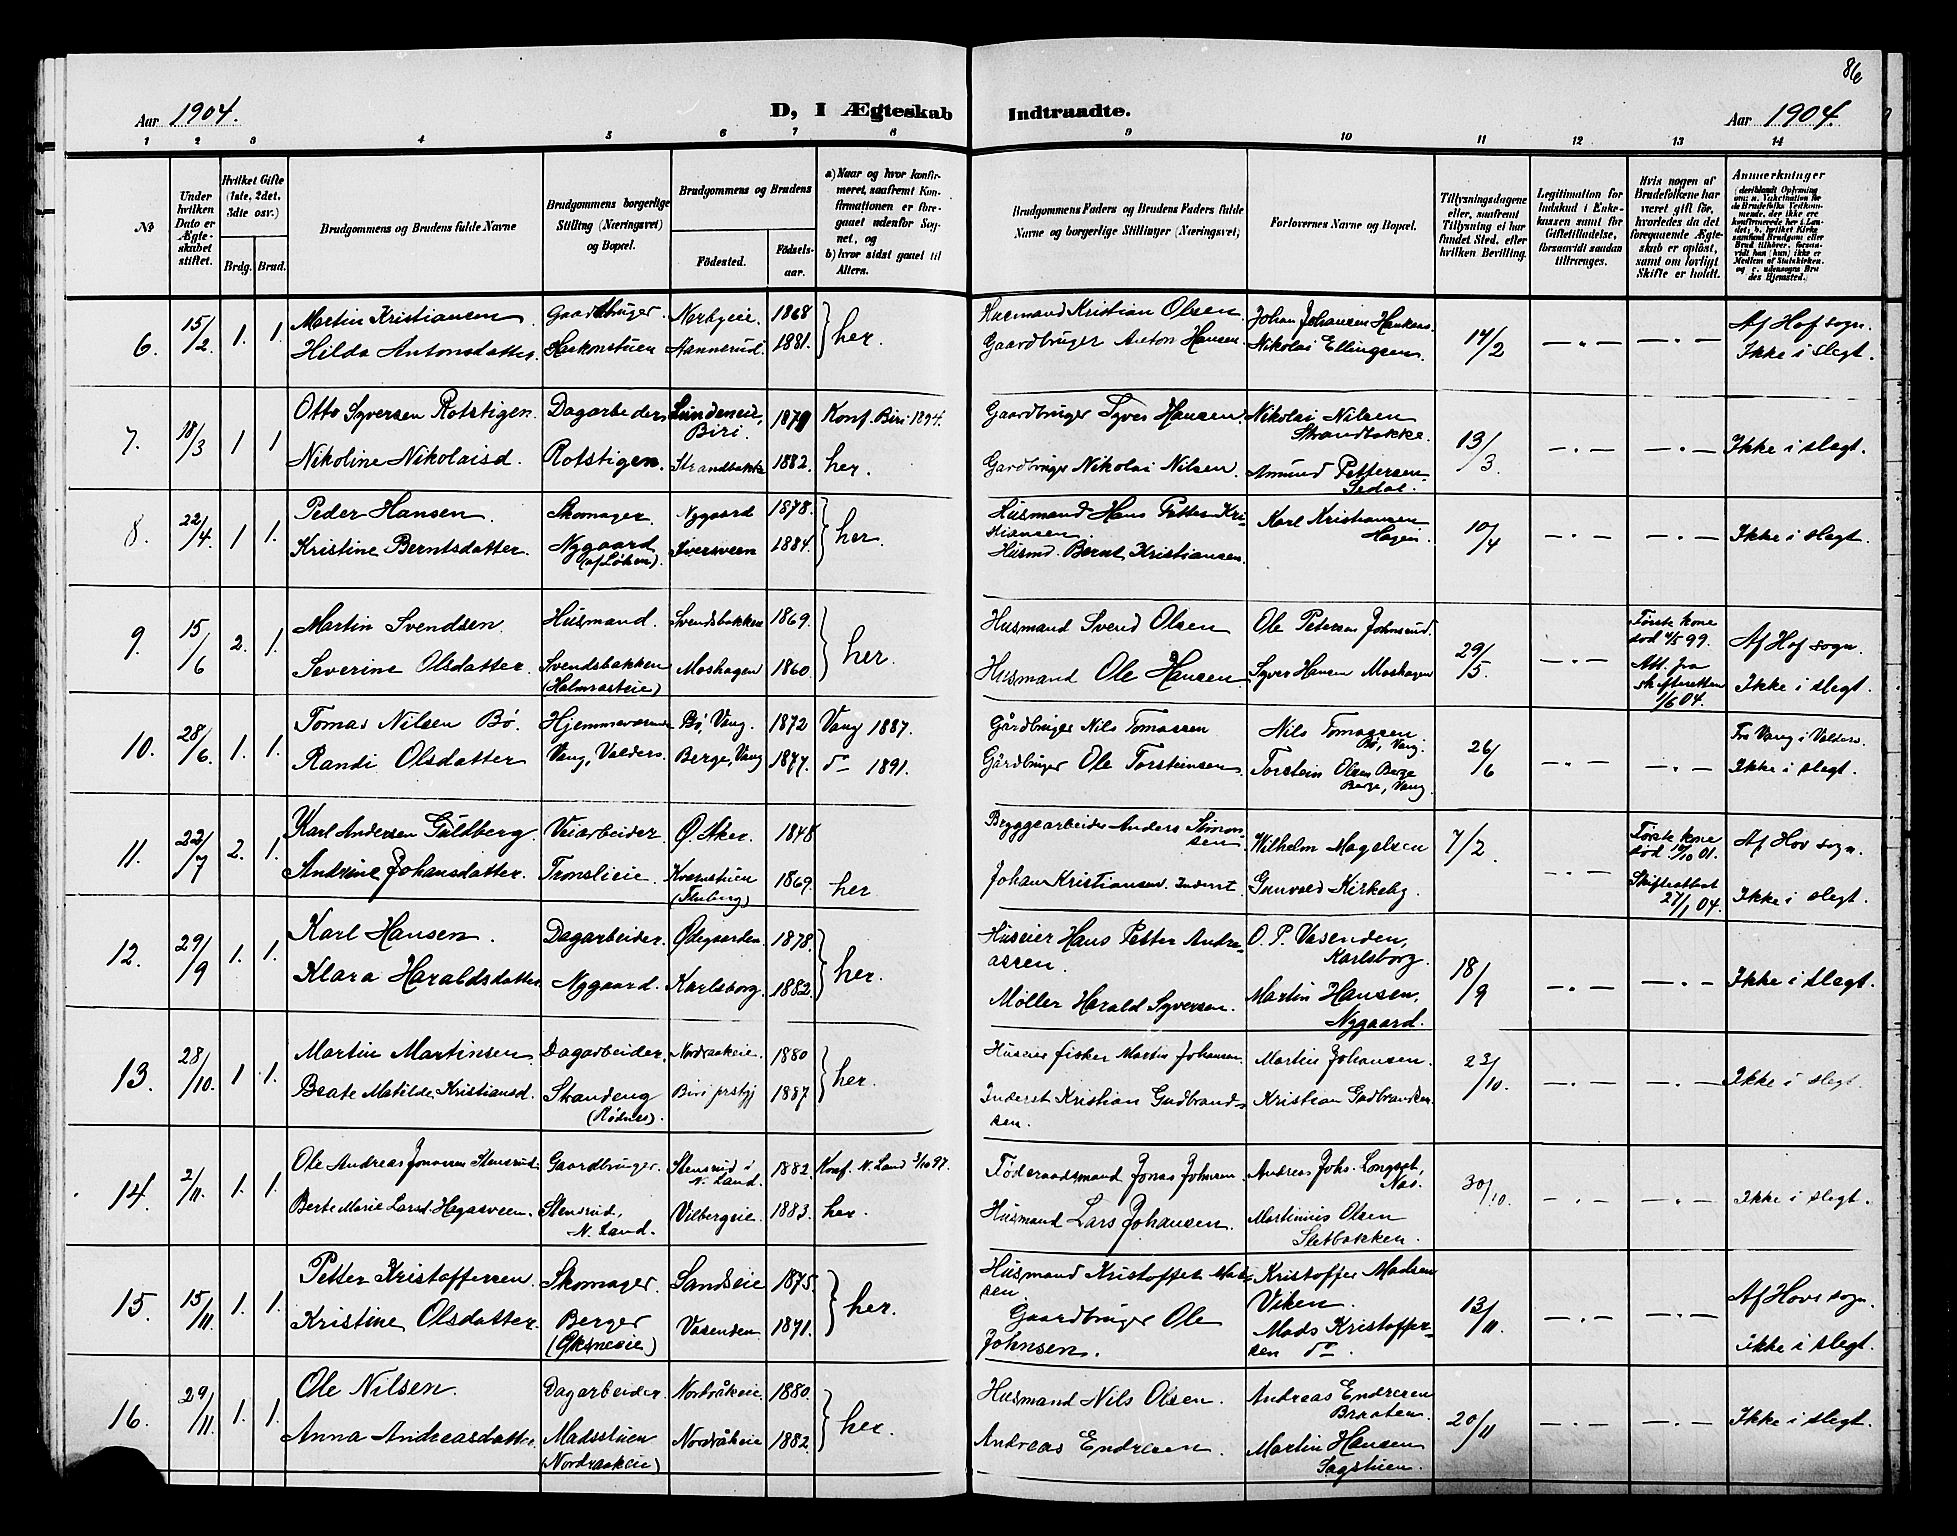 86
Aar 1904.
D, I Ægteskab Indtraadte.
Aar 1904.
1 2 3 4 5 6 7 8 9 10 11 12 13 14
№
Under hvilken Dato er Ægteskabet stiftet.
Hvilket Gifte (1ste, 2det, 3dte osv.)
Brdg. Brud.
Brudgommens og Brudens fulde Navne
Brudgommens borgerlige Stilling (Næringsvei) og Bopæl.
Brudgommens og Brudens
Fødested.
Fødselsaar.
a) Naar og hvor konfirmeret, saafremt Konfirmationen er foregaaet udenfor Sognet, og
b) hvor sidst gaaet til Alters.
Brudgommens Faders og Brudens Faders fulde Navne og borgerlige Stillinger (Næringsvei)
Forlovernes Navne og Bopæl.
Tillysningsdagene eller, saafremt Tillysning ei har fundet Sted, efter hvilken Bevilling.
Legitimation for Indskud i Enkekassen samt for Giftetilladelse, forsaavidt saadan tiltrænges.
Hvis nogen af Brudefolkene har været gift før, hvorledes da det foregaaende Ægteskab er opløst, samt om lovligt Skifte er holdt.
Anmerkninger
6. 15/2 1. 1. Martin Kristiansen Gaardbruger Nerbyeie. 1868 her. Husmand Kristian Olsen. Johan Johansen 14/2 Af Hof sogn.
Hilda Antonsdatter Hannerud. 1881. Gaardbruger Anton Hansen Nikolai Ellingsen Ikke i slegt.
7. 18/3 1 1 Otto Syversen Rotstigen. Dagarbeider Lundeneie, Biri. 1879 Konf. Biri 1894. Gaardbruger Syver Hansen Nikolai Nilsen Strandbakke. 13/3. Ikke i slegt.
Nikoline Nikolaisd. Rotstigen. Strandbakke 1882. her. Gardbruger Nikolai Nilsen. Amund Pettersen
8. 22/4. 1 1. Peder Hansen. Skomager. Nygaard 1878. her. Husmand Hans Petter Kristiansen. Karl Kristiansen Hagen 10/4 Ikke i slegt.
Kristine Berntsdatter. Nygaard (af Løken). Iversveen 1884. Husmd. Bernt Kristiansen.
9. 15/6 2. 1. Martin Svendsen. Husmand. Svendsbakken 1869. her. Husmand Svend Olsen Ole Petersen Johnsrud. 29/5. Første kone død 4/5 99. Af Hof sogn.
Severine Olsdatter. Svendsbakken Moshagen 1860. Husmand Ole Hansen. Syver Hansen Moshagen Att. fra skifteretten 1/6 04. Ikke i slegt.
10. 28/6. 1. 1. Tomas Nilsen Bø. Hjemmeværende Bø, Vang. 1872 Vang 1887. Gårdbruger Nils Tomassen Nils Tomassen Bø, Vang. 26/6 Fra Vang i Valders.
Randi Olsdatter Vang, Valders. Berge, Vang 1877. do 1891. Gårdbruger Ole Torsteinsen. Torstein Olsen Berge Berge, Vang. Ikke i slegt.
11. 22/7 2. 1. Karl Andersen Guldberg. Veiarbeider. Ø. Aker. 1848 Bryggearbeider Anders Simonsen Wilhelm Magelsen 7/2 Første kone død 19/10 01. Af Hov sogn.
Andrine Johansdatter. Tronslieie. Kvernstuen (Fluberg) 1869. her Johan Kristiansen. Inderst. Gunvald Kirkeby. Skifteattest 27/1 04. Ikke i slegt.
12. 29/9 1. 1. Karl Hansen. Dagarbeider. Ødegaarden 1878. her. Huseier Hans Petter Andreassen. O. P. Vasenden, Karlsborg. 18/9 Ikke i slegt.
Klara Haraldsdatter. Nygaard. Karlsborg. 1882. Møller Harald Syversen. Martin Hansen, Nygaard.
13. 28/10. 1 1. Martin Martinsen Dagarbeider. Nordraakeie. 1880 her. Huseier fisker Martin Johansen. Martin Johansen. 23/10. Ikke i slegt
Beate Matilde Kristiansd. Strandeng (Rødnes). Biri prstgj 1887 Inderst Kristian Gudbrandsen. Kristian Gudbrandsen
14. 2/11. 1. 1. Ole Andreas Jonassen Stensrud. Gaardbruger. Stensrud i N. Land. 1882. Konf. N. Land 3/10 97. Føderaadsmand Jonas Johnsen Andreas Johs. Longset, Nas. 30/10. Ikke i slegt.
Berte Marie Larsd. Hagasveen. Stensrud, N. Land. Vilbergeie. 1883. her. Husmand Lars Johansen. Martinius Olsen Sletbakken.
15. 15/11. 1. 1. Petter Kristoffersen Skomager. Sandseie 1875. her. Husmand Kristoffer Madsen. Kristoffer Madsen Viken. 13/11. Af Hovs sogn.
Kristine Olsdatter. Berger (Øksneeie) Vasenden 1871. Gaardbruger Ole Johnsen. Mads Kristoffersen do. ikke i slegt.
16. 29/11. 1. 1. Ole Nilsen. Dagarbeider. Nordråkeie. 1880. her. Husmand Nils Olsen. Andreas Endresen Braaten. 20/11 Ikke i slegt.
Anna Andreasdatter. Madsstuen (Nordraakeie) Nordråkeie 1882. Andreas Endresen. Martin Hansen Sagstuen.